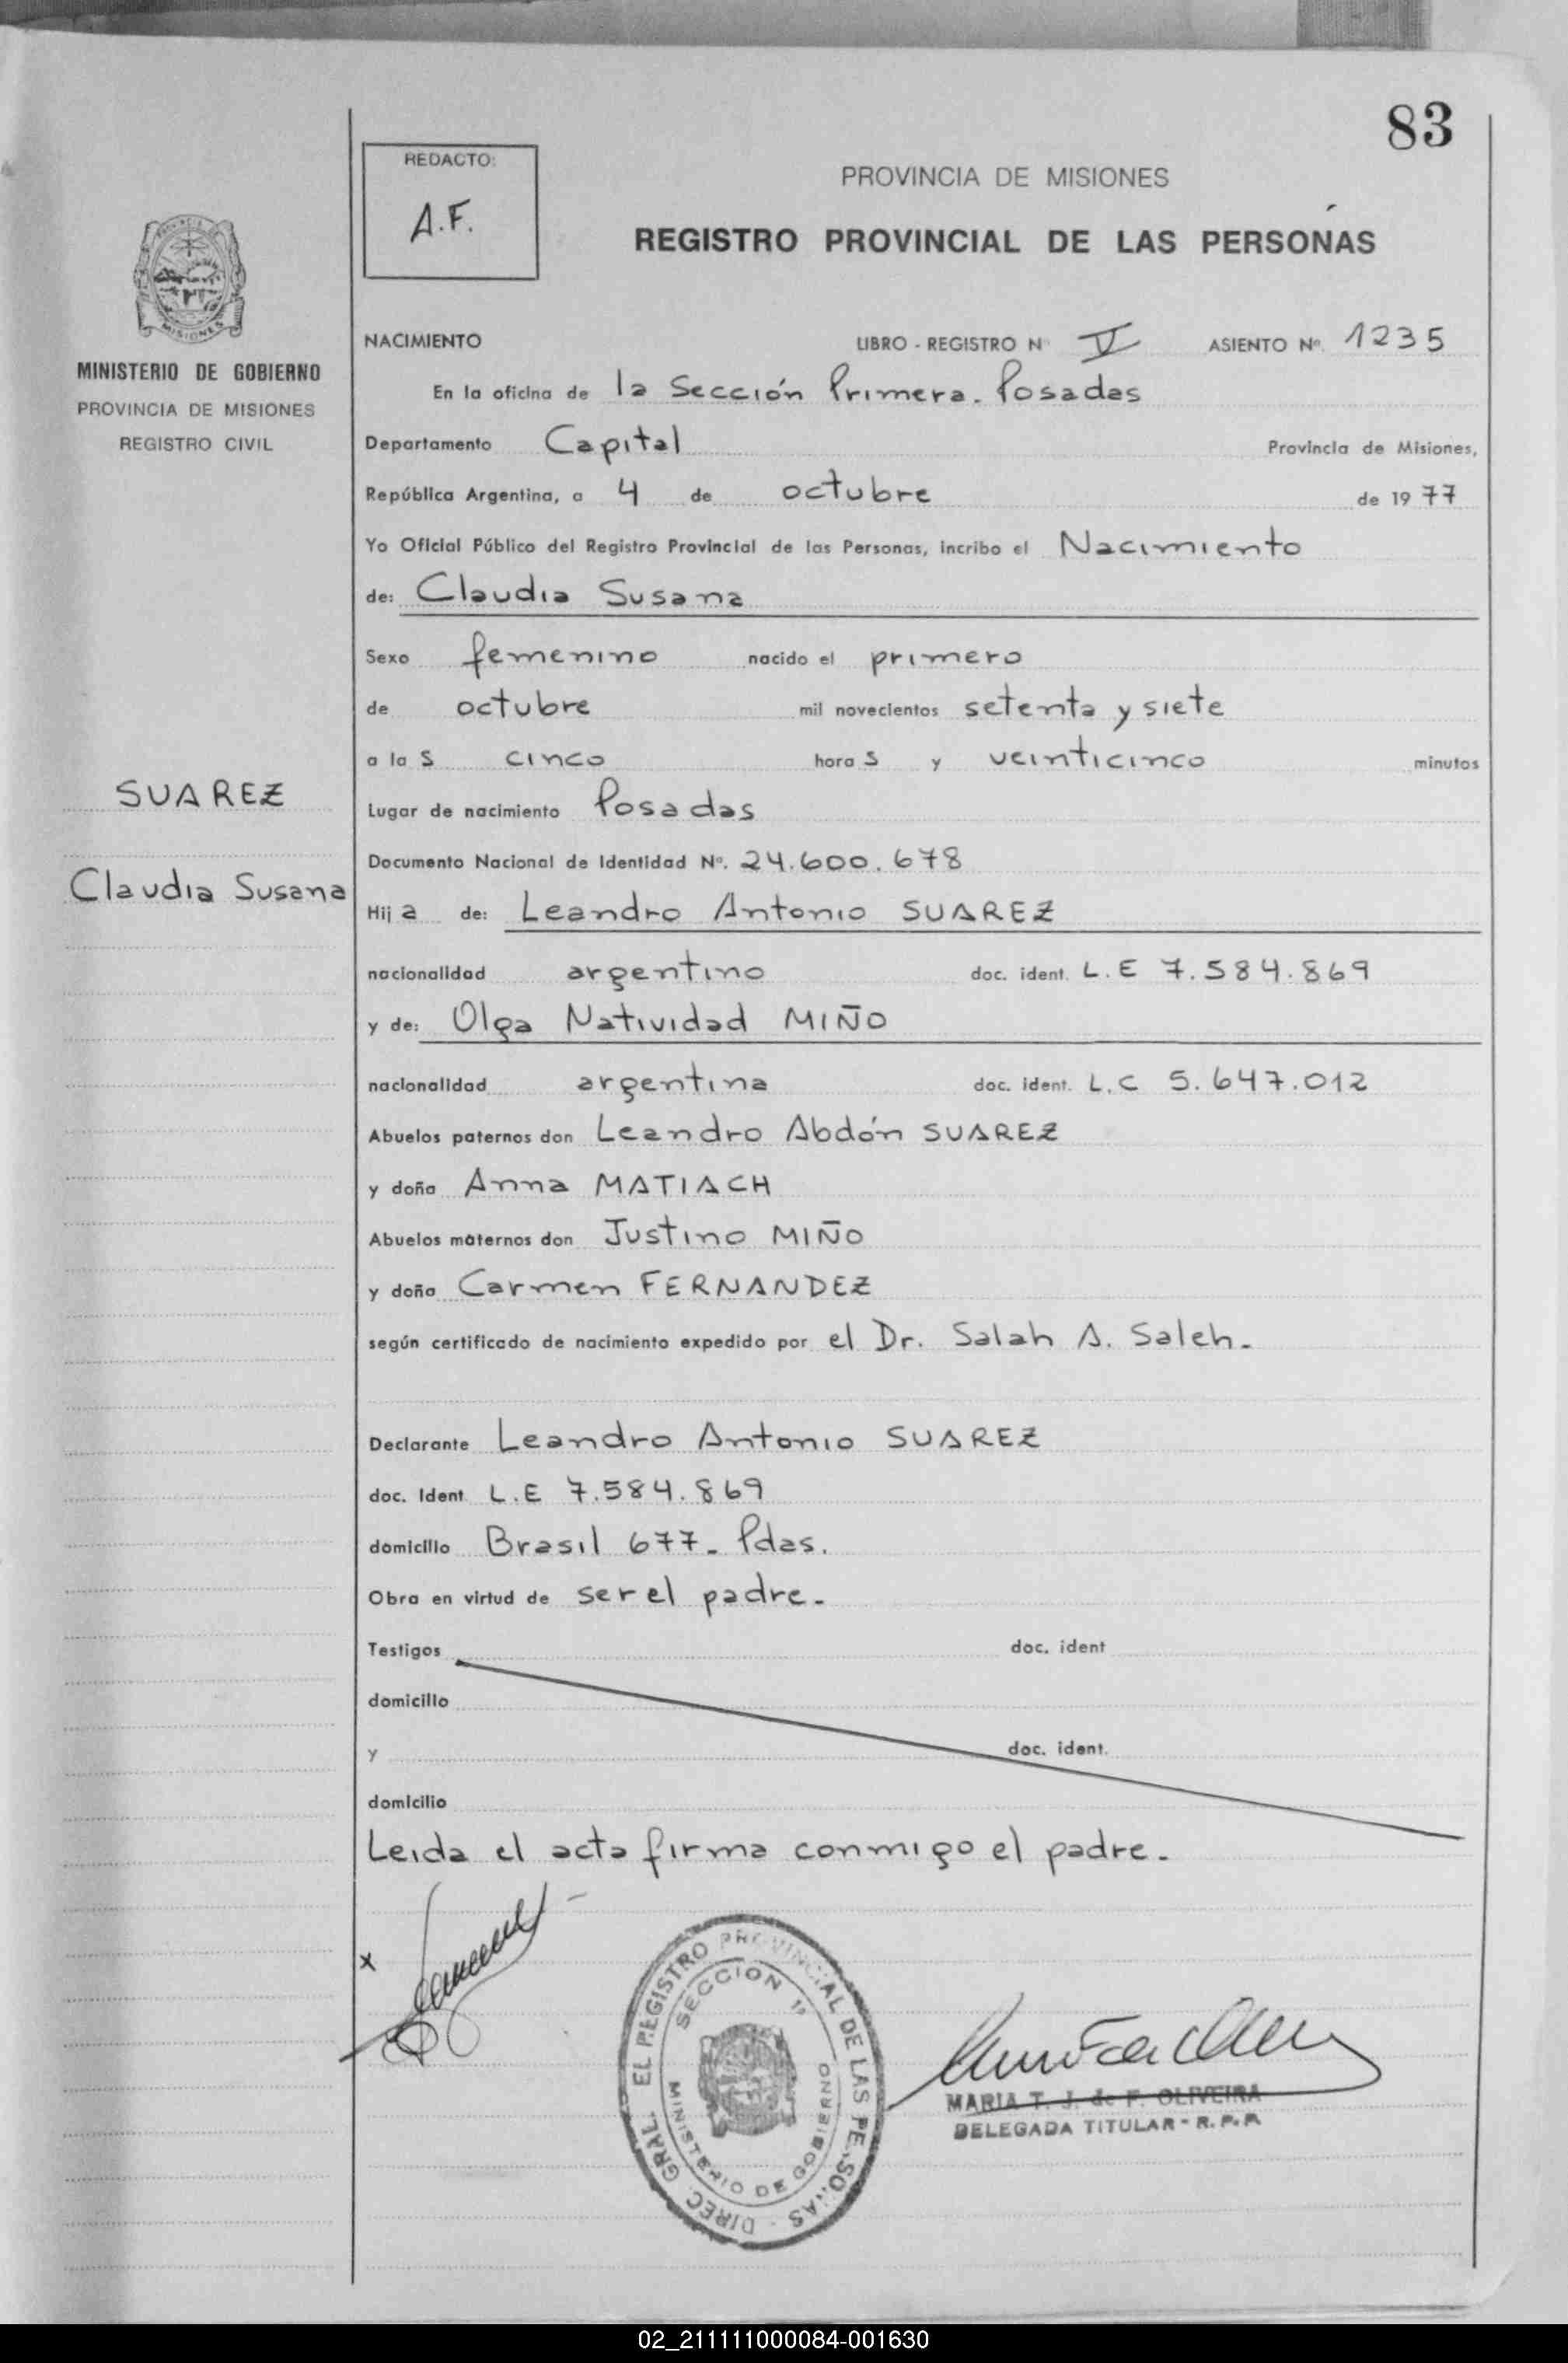 83
REDACTO:
A.F.
PROVINCIA DE MISIONES
REGISTRO PROVINCIAL DE LAS PERSONAS
MISIONES
MINISTERIO DE GOBIERNO
PROVINCIA DE MISIONES
REGISTRO CIVIL
SUAREZ
Claudia Susana
NACIMIENTO LIBRO - REGISTRO Nº V ASIENTO Nº. 1235
En la oficina de la Sección Primera. Posadas
Departamento Capital Provincia de Misiones,
República Argentina, a 4 de octubre de 1977
Yo Oficial Público del Registro Provincial de las Personas, incribo el Nacimiento
de: Claudia Susana
Sexo femenino nacido el primero
de octubre mil novecientos setenta y siete
a las cinco horas y veinticinco minutos
Lugar de nacimiento Posadas
Documento Nacional de Identidad Nº. 24.600.678
Hija de: Leandro Antonio SUAREZ
nacionalidad argentino doc. ident. L.E 7.584.869
y de: Olga Natividad MIÑO
nacionalidad argentina doc. ident. L.C 5.647.012
Abuelos paternos don Leandro Abdón SUAREZ
y doña Anna MATIACH
Abuelos maternos don Justino MIÑO
y doña Carmen FERNANDEZ
según certificado de nacimiento expedido por el Dr. Salah A. Saleh.
Declarante Leandro Antonio SUAREZ
doc. Ident. L.E 7.584.869
domicilio Brasil 677. Pdas.
Obra en virtud de ser el padre.
Testigos doc. ident
domicilio
y doc. ident.
domicilio
Leida el acta firma conmigo el padre.
x
DIREC. GRAL. EL REGISTRO PROVINCIAL DE LAS PERSONAS
SECCION 1ª
MINISTERIO DE GOBIERNO
MARIA T. J. de F. OLIVEIRA
DELEGADA TITULAR - R.P.P.
02_211111000084-001630